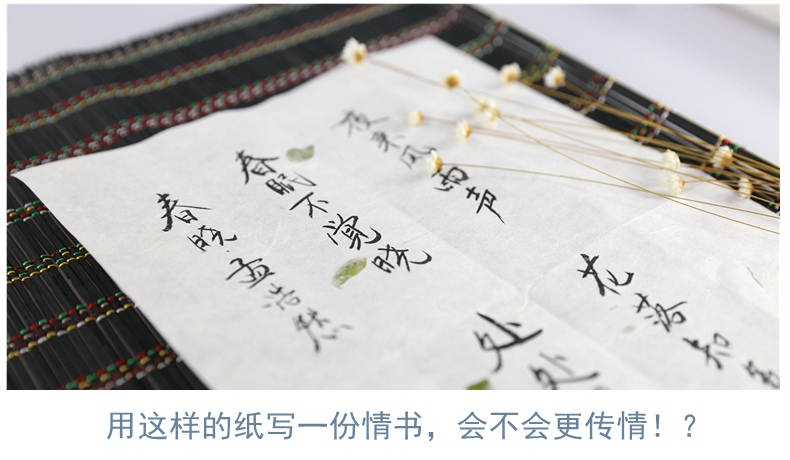 春晓 孟浩然
春眠不觉晓
处处
夜来风雨声
花落知
用这样的纸写一份情书，会不会更传情！？